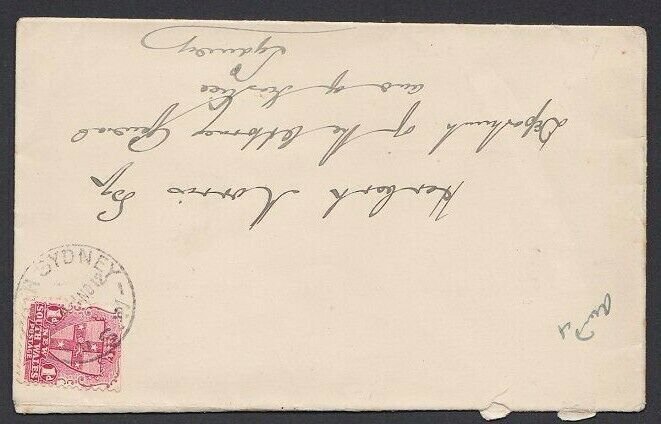 Herbert Norris Esq
Department of the Attorney General
and of Justice
Sydney
SYDNEY
NO 12
1D
1D
NEW
SOUTH WALES
POSTAGE